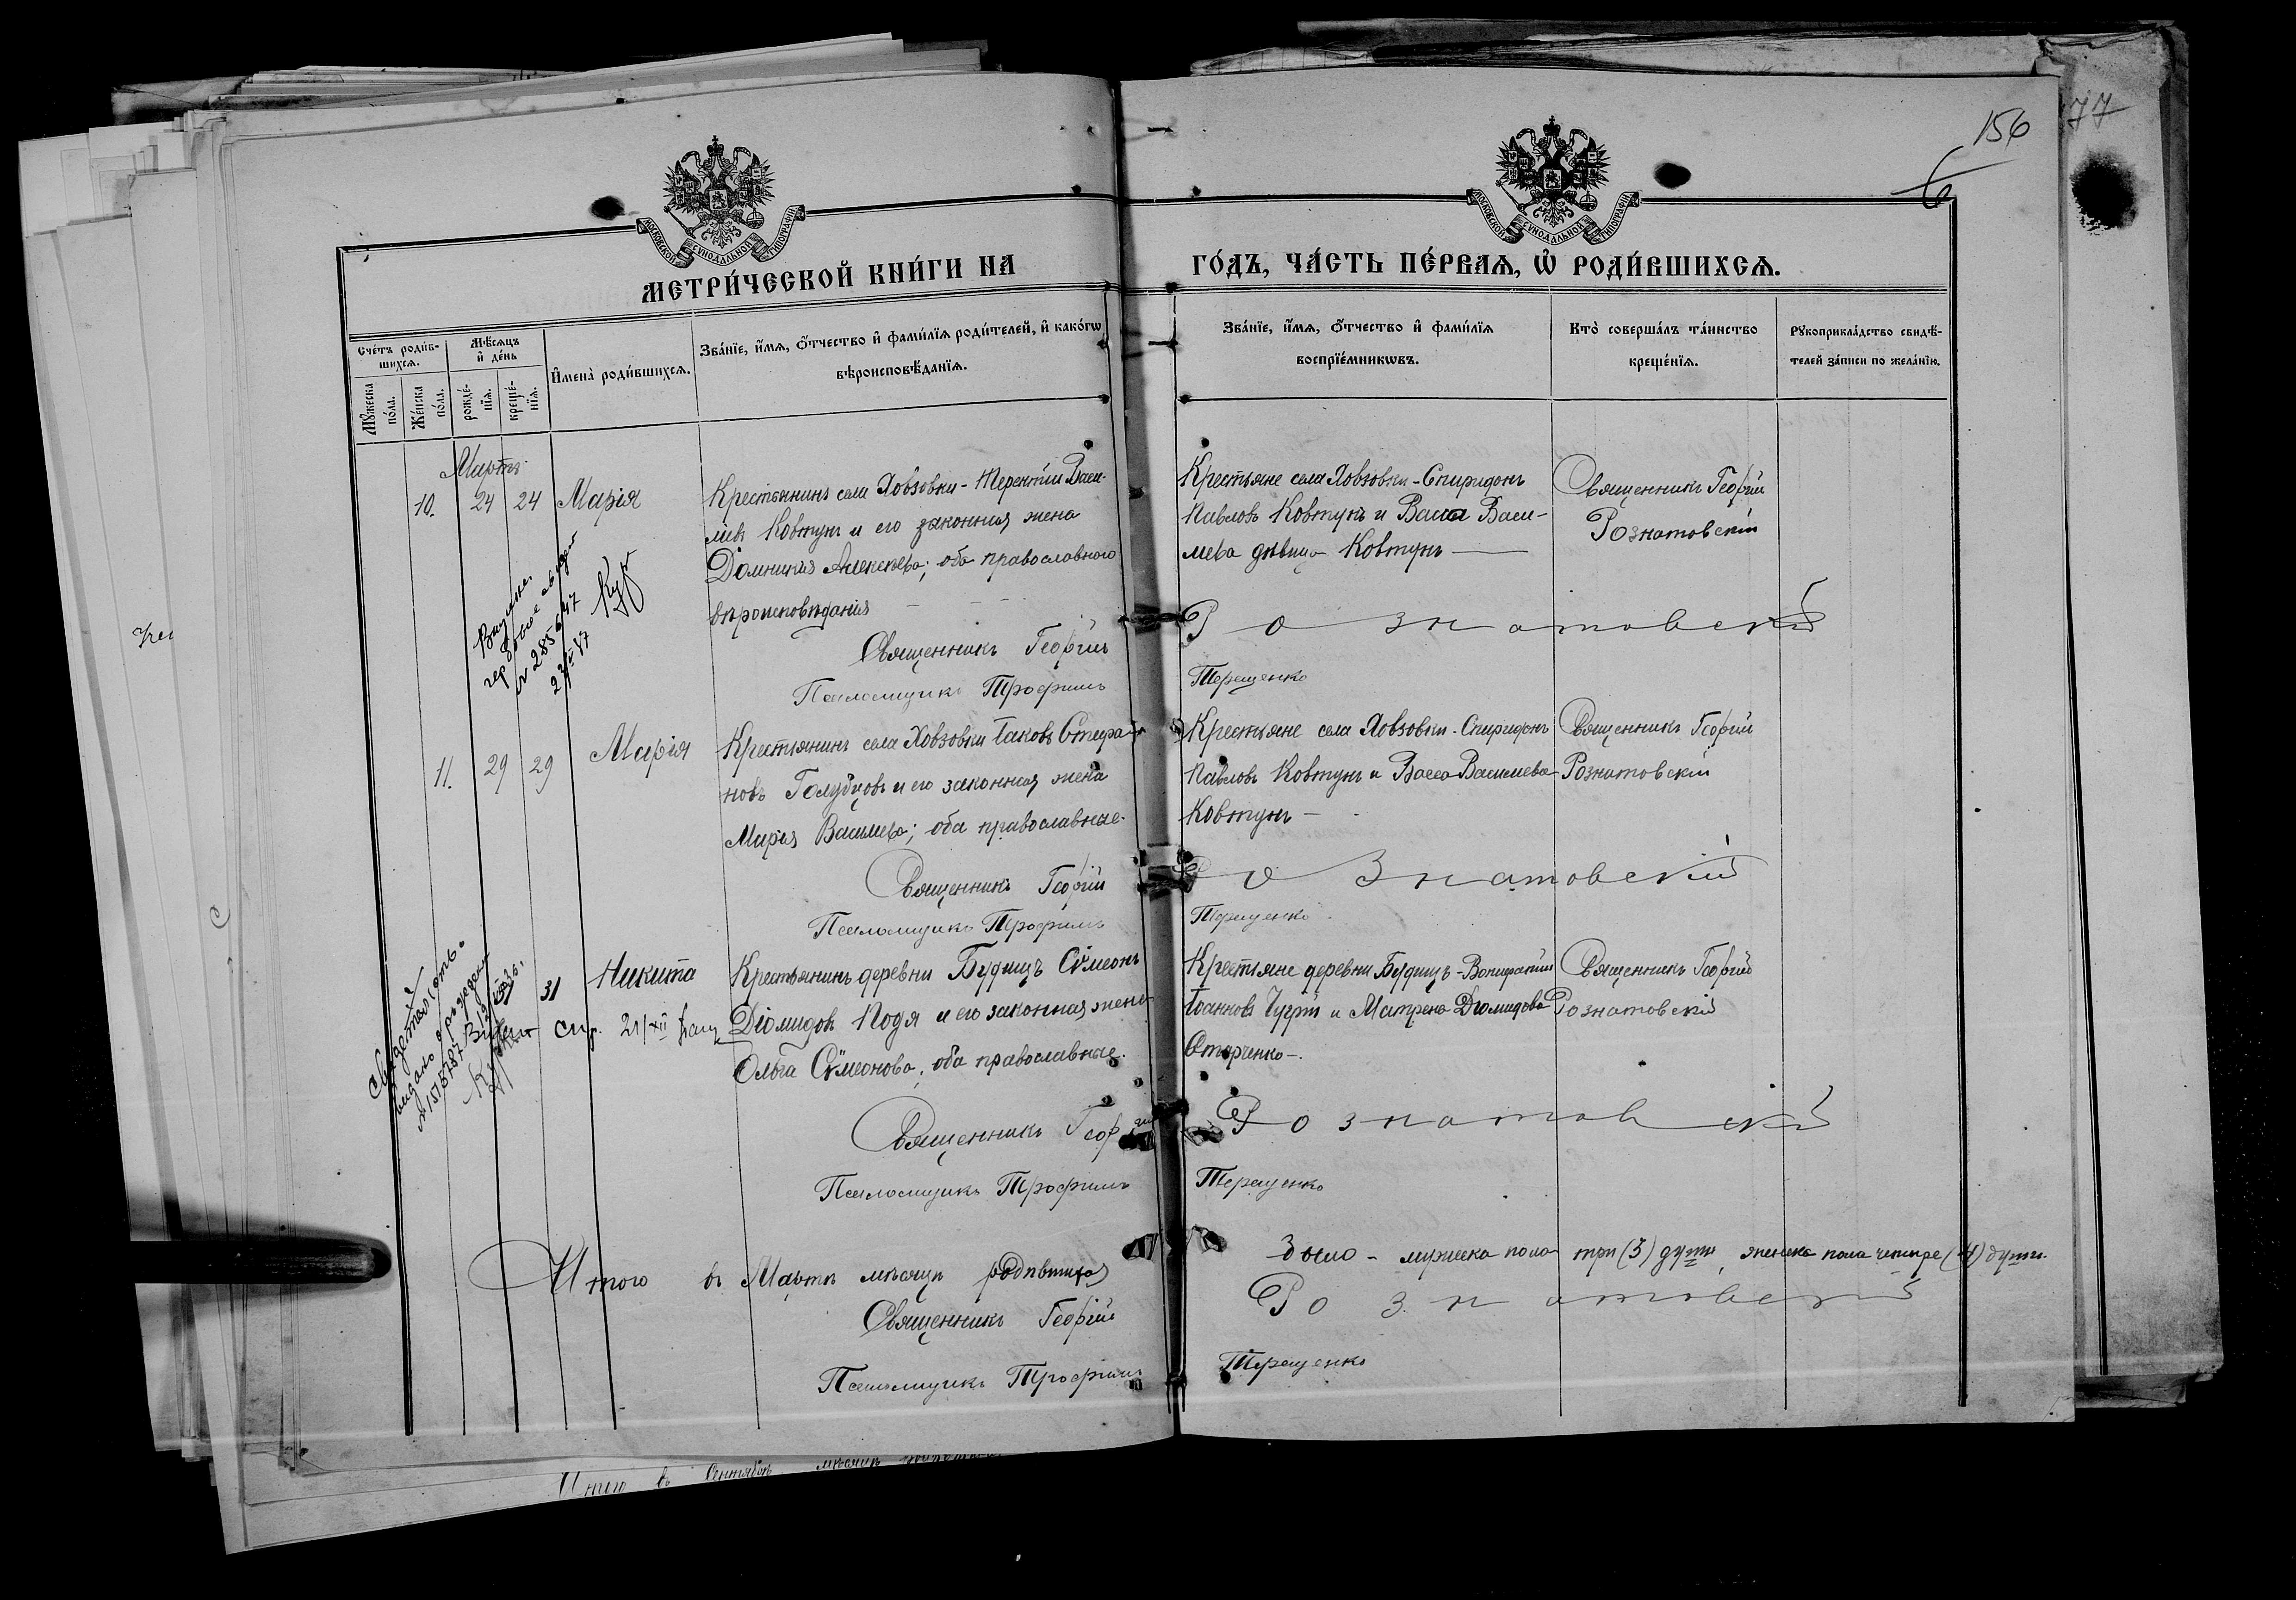 156
77
6
МОСКОВСКОЙ СѴНОДАЛЬНОЙ ТИПОГРАФІИ
МОСКОВСКОЙ СѴНОДАЛЬНОЙ ТИПОГРАФІИ
МЕТРИ́ЧЕСКОЙ КНИ́ГИ НА ГО́ДЪ, ЧА́СТЬ ПЕ́РВАѦ, Ѡ҆ РОДИ́ВШИХСѦ.
Сче́тъ роди́в-
шихсѧ.
Мꙋ́жеска по́ла.
Же́нска по́ла.
Мѣ́сѧцъ и҆ де́нь
рожде́-
нїѧ.
креще́-
нїѧ.
И҆мена̀ роди́вшихсѧ.
Зва́нїе, и҆́мѧ, ѻ҆́тчество и҆ фами́лїѧ роди́телей, и҆ како́гѡ
вѣроисповѣ́данїѧ.
Зва́нїе, и҆́мѧ, ѻ҆́тчество и҆ фами́лїѧ
воспрїе́мникѡвъ.
Кто̀ соверша́лъ та́инство
креще́нїѧ.
Рꙋкоприкла́дство свидѣ́-
телей за́писи по жела́нїю.
Мартъ
10. 24 24 Марія
Крестьянинъ села Ховзовки - Терентій Васи-
льевъ Ковтунъ и его законная жена
Домникія Алексѣева; оба православнаго
вѣроисповѣданія
Священникъ Георгій
Псаломщикъ Трофимъ
Крестьяне села Ховзовки - Спиридонъ
Павловъ Ковтунъ и Васса Васи-
льева дѣвица Ковтунъ
Розматовскій
Терещенко
Священникъ Георгій
Розматовскій
285647
Кур
11. 29 29 Марія
Крестьянинъ села Ховзовки Іаковъ Стефа-
новъ Голубцовъ и его законная жена
Марія Васильева; оба православные.
Священникъ Георгій
Псаломщикъ Трофимъ
Крестьяне села Ховзовки - Спиридонъ
Павловъ Ковтунъ и Васса Васильева
Ковтунъ
Розматовскій
Терещенко
Священникъ Георгій
Розматовскій
31 31 Никита
Крестьянинъ деревни Будищъ Сѵмеонъ
Діомидовъ Подя и его законная жена
Ольга Сѵмеонова, оба православные.
Священникъ Георгій
Псаломщикъ Трофимъ
Крестьяне деревни Будищъ - Вонифатій
Іоанновъ и Матрена Діомидова
Старченко.
Розматовскій
Терещенко
Священникъ Георгій
Розматовскій
видано о
Итого въ Мартѣ мѣсяцѣ родившихся было - мужеска пола три (3) души, женска пола четыре (4) души.
Священникъ Георгій Розматовскій
Псаломщикъ Трофимъ Терещенко
Итого въ Сентябрѣ мѣсяцѣ